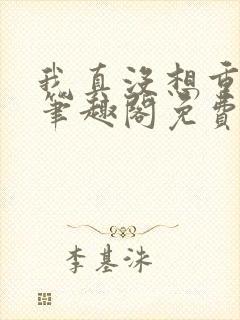 我真没想重
笔趣阁免费
李基洙